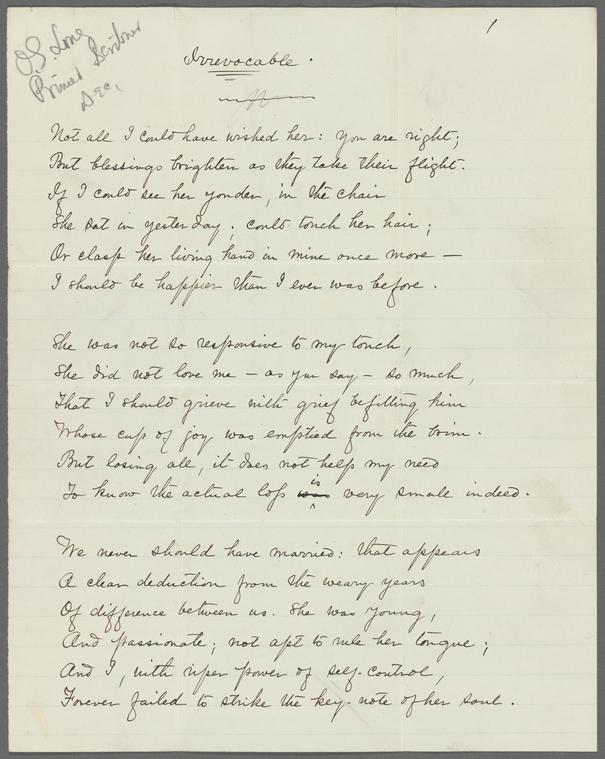 1
O.S. Long
Printed Scribner
Dec.
Irrevocable.
Not all I could have wished her: you are right;
But blessings brighten as they take their flight.
If I could see her yonder, in the chair
She sat in yesterday; could touch her hair;
Or clasp her living hand in mine once more —
I should be happier than I ever was before.
She was not so responsive to my touch,
She did not love me — as you say — so much,
That I should grieve with grief befitting him
Whose cup of joy was emptied from the brim.
But losing all, it does not help my need
is
To know the actual loss was very small indeed.
We never should have married: that appears
A clear deduction from the weary years
Of difference between us. She was young,
And passionate; not apt to rule her tongue;
And I, with riper power of self-control,
Forever failed to strike the key-note of her soul.